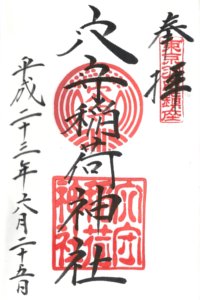 奉拝
東京羽田鎮座
穴守稲荷神社
穴守
稲荷
神社
平成二十三年六月二十五日